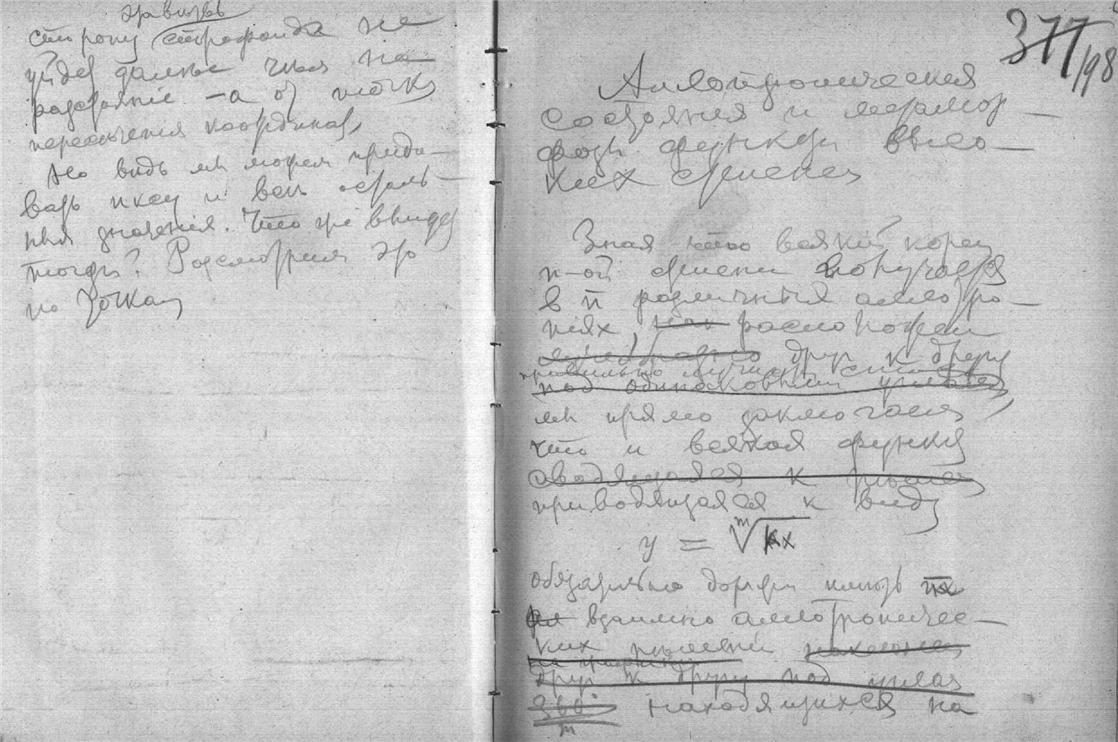 сторону строфоида не
уйдет дальше чем на
разстоянiе -a от точки
пересечения координат,
Но ведь мы можем прида-
вать иксу и все осталь-
ныя значения. Что же выйдет
тогда? Разсмотрим это
по точкам
377/98
Аллотропическия
состояния и метамор-
фозы функций высо-
ких степеней
Зная что всякий корень
n-ой степени получается
в n различных аллотро-
пиях, расположен
друг к другу
под одинаковыми углами
мы прямо заключаем,
что и всякая функция
сводящаяся к
приводящаяся к виду
y = ᵐ√kx
обязательно должна иметь m
взаимно аллотропичес-
ких
друг к другу под углам
находящихся на